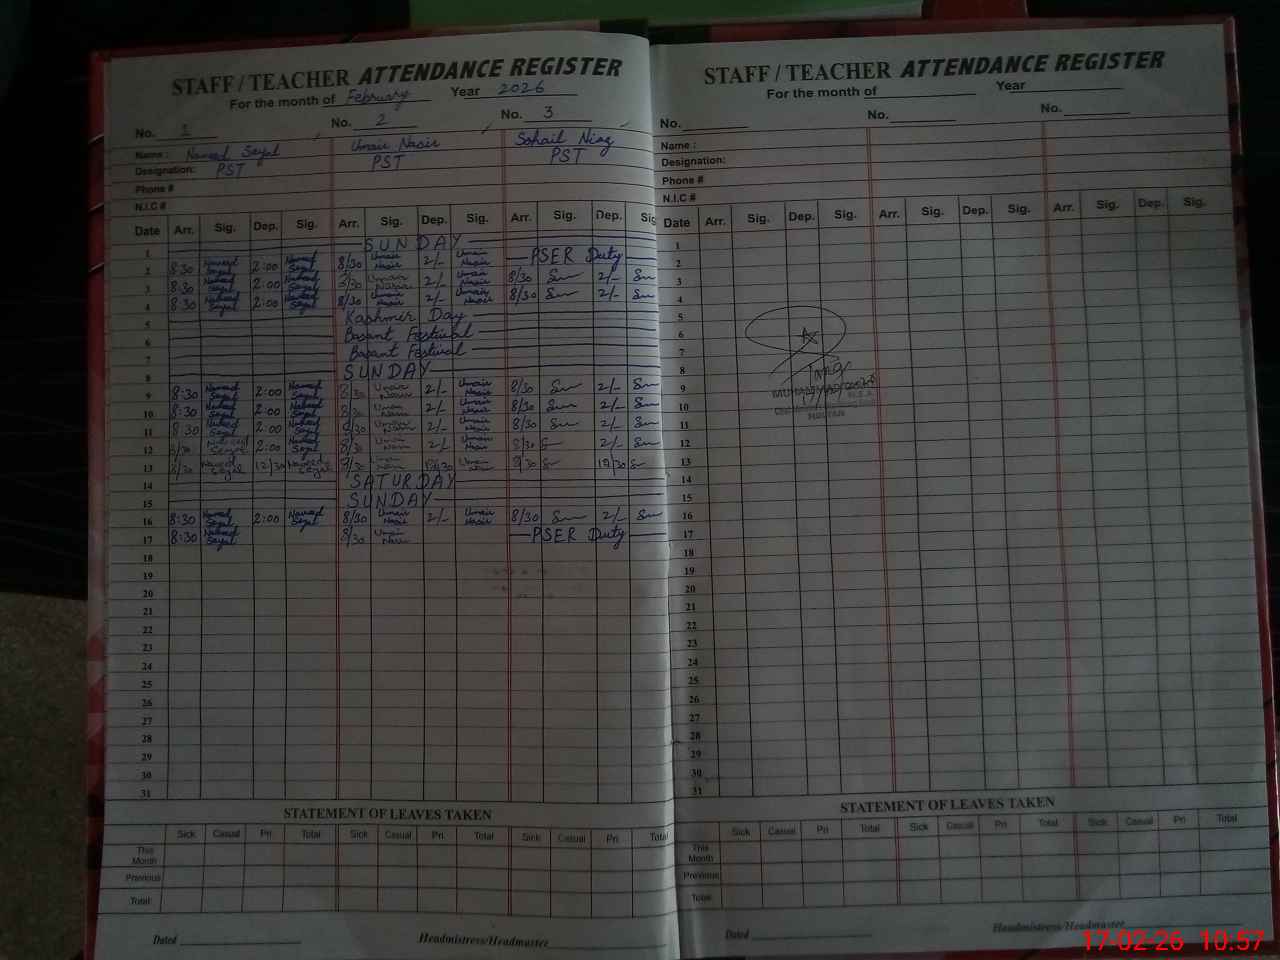 STAFF / TEACHER ATTENDANCE REGISTER
For the month of February Year 2026
No. 1 No. 2 No. 3
Name : Naveed Seyal Umair Nasir Sohail Niaz
Designation: PST PST PST
Phone #
N.I.C #
Date Arr. Sig. Dep. Sig. Arr. Sig. Dep. Sig. Arr. Sig. Dep. Sig
1 SUNDAY
2 8:30 Naveed Seyal 2:00 Naveed Seyal 8/30 Umair Nasir 2/- Umair Nasir PSER Duty
3 8:30 Naveed Seyal 2:00 Naveed Seyal 8/30 Umair Nasir 2/- Umair Nasir 8/30 2/-
4 8:30 Naveed Seyal 2:00 Naveed Seyal 8/30 Umair Nasir 2/- Umair Nasir 8/30 2/-
5 Kashmir Day
6 Basant Festival
7 Basant Festival
8 SUNDAY
9 8:30 Naveed Seyal 2:00 Naveed Seyal 8/30 Umair Nasir 2/- Umair Nasir 8/30 2/-
10 8:30 Naveed Seyal 2:00 Naveed Seyal 8/30 Umair Nasir 2/- Umair Nasir 8/30 2/-
11 8:30 Naveed Seyal 2:00 Naveed Seyal 8/30 Umair Nasir 2/- Umair Nasir 8/30 2/-
12 8/30 Naveed Seyal 2:00 Naveed Seyal 8/30 Umair Nasir 2/- Umair Nasir 8/30 2/-
13 8/30 Naveed Seyal 12/30 Naveed Seyal 8/30 Umair Nasir 12/30 Umair 8/30 12/30
14 SATURDAY
15 SUNDAY
16 8:30 Naveed Seyal 2:00 Naveed Seyal 8/30 Umair Nasir 2/- Umair Nasir 8/30 2/-
17 8:30 Naveed Seyal 8/30 Umair Nasir PSER Duty
18
19
20
21
22
23
24
25
26
27
28
29
30
31
STATEMENT OF LEAVES TAKEN
Sick Casual Pri. Total Sick Casual Pri. Total Sick Casual Pri Total
This Month
Previous
Total:
Dated Headmistress/Headmaster
STAFF / TEACHER ATTENDANCE REGISTER
For the month of Year
No. No. No.
Name :
Designation:
Phone #
N.I.C #
Date Arr. Sig. Dep. Sig. Arr. Sig. Dep. Sig. Arr. Sig. Dep. Sig.
1
2
3
4
5
6
7
8
9
MUHAMMAD
10
11
12
13
14
15
16
17
18
19
20
21
22
23
24
25
26
27
28
29
30
31
STATEMENT OF LEAVES TAKEN
Sick Casual Pri Total Sick Casual Pri Total Sick Casual Pri Total
This Month
Previous
Total:
Dated Headmistress/Headmaster
17-02-26 10:57